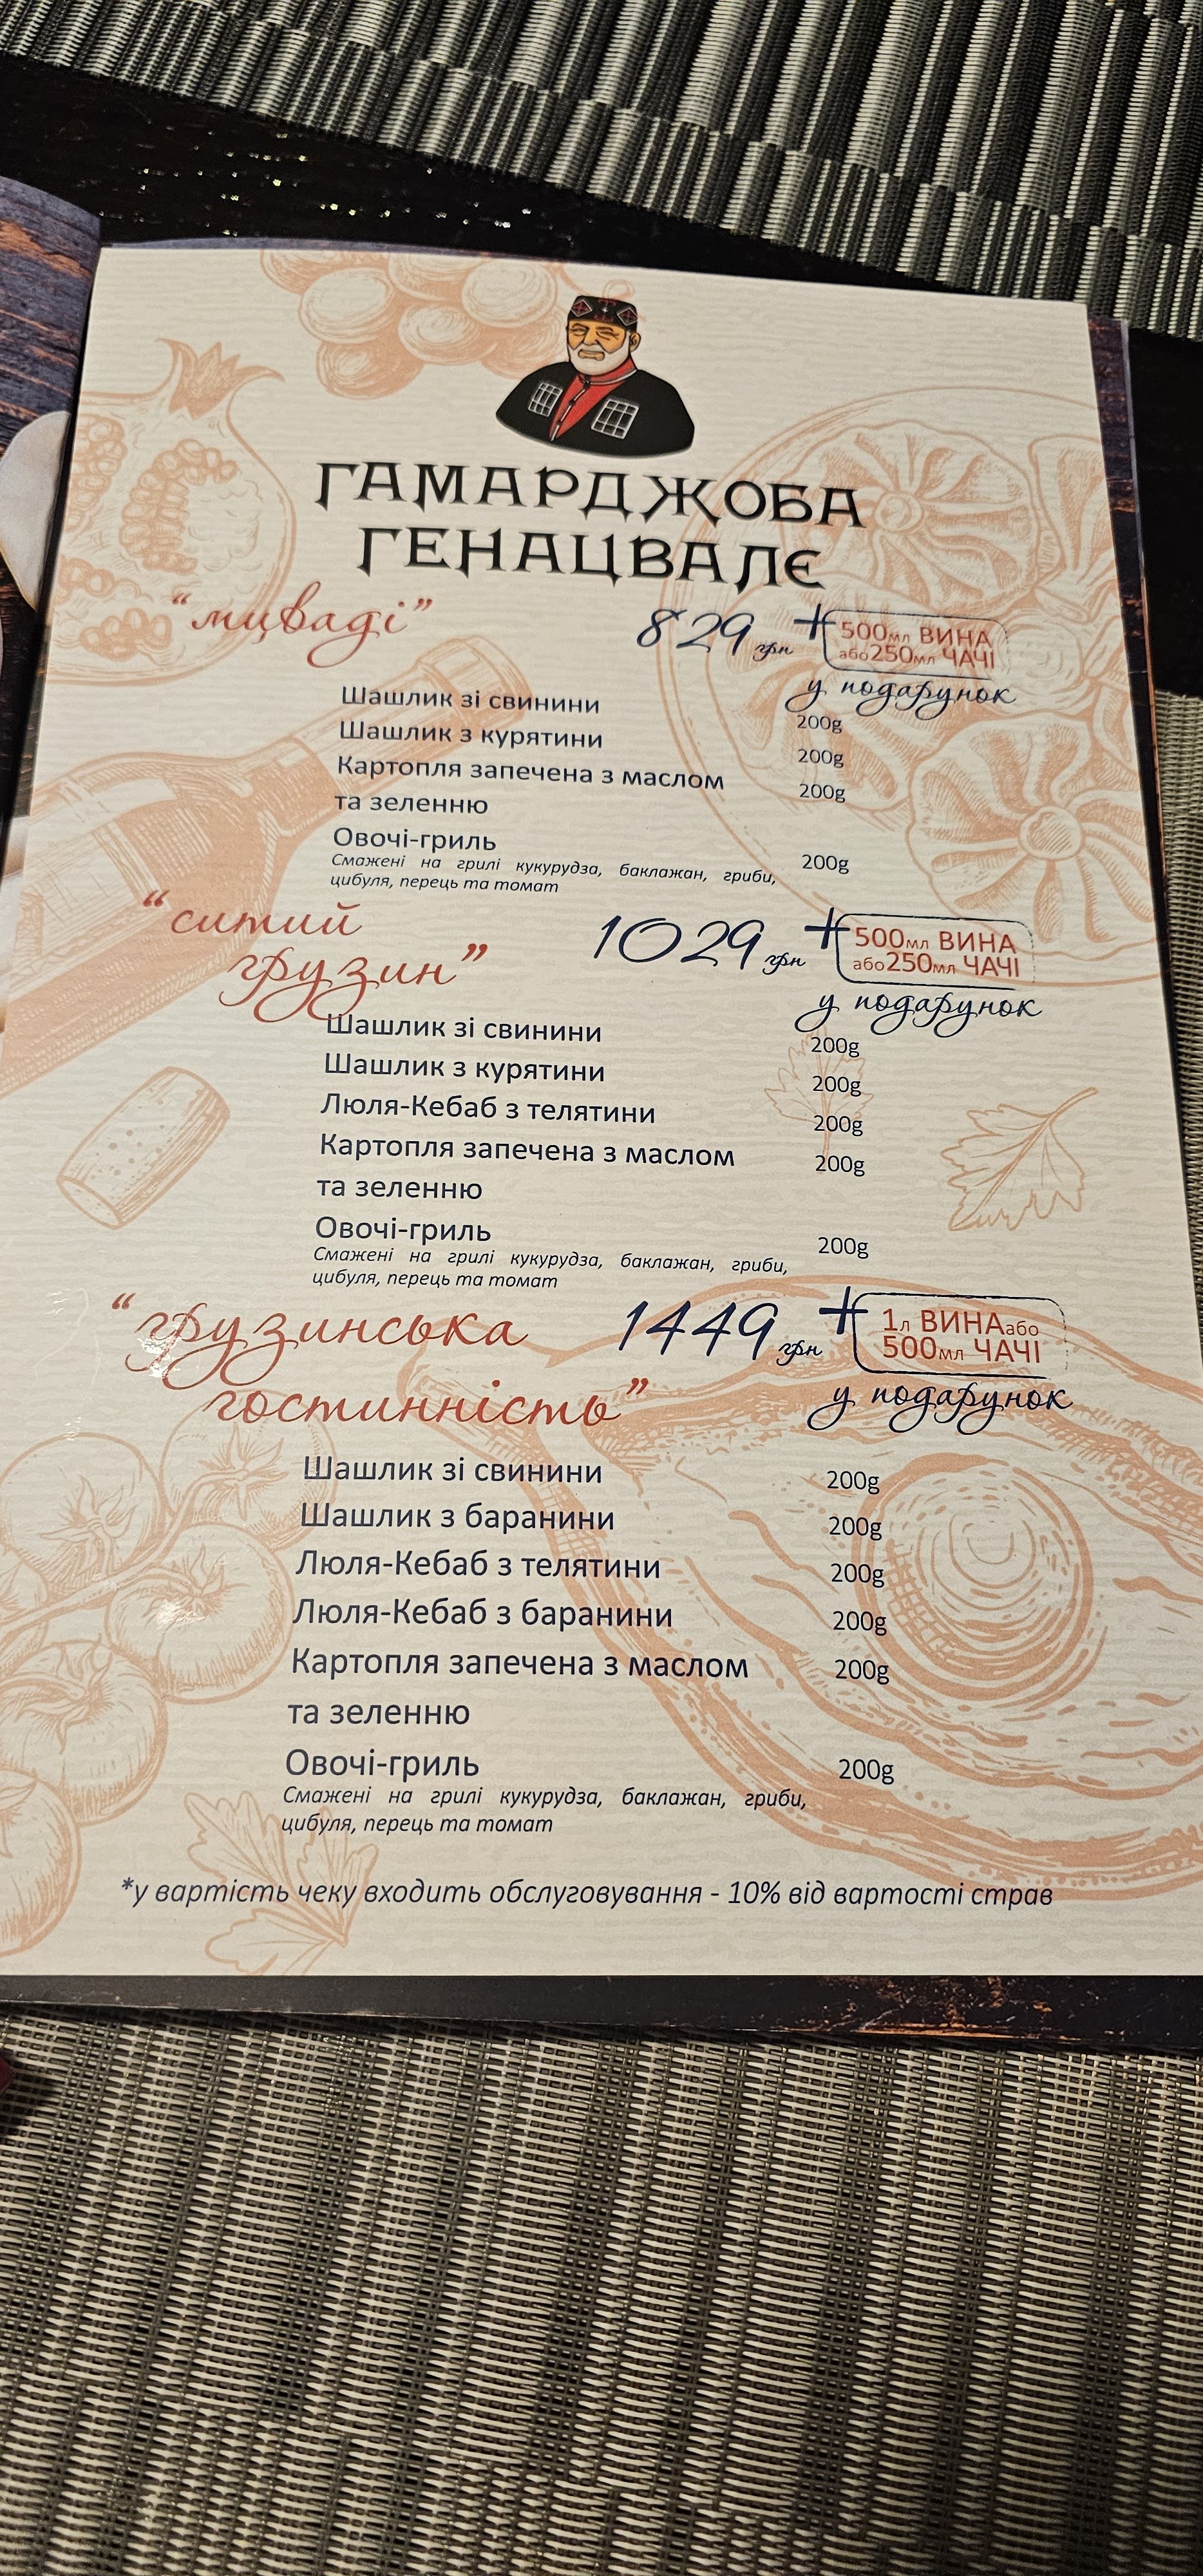 ГАМАРДЖОБА
ГЕНАЦВАЛЄ
“мцваді” 829 грн + 500мл ВИНА
або250мл ЧАЧІ
у подарунок
Шашлик зі свинини 200g
Шашлик з курятини 200g
Картопля запечена з маслом 200g
та зеленню
Овочі-гриль 200g
Смажені на грилі кукурудза, баклажан, гриби,
цибуля, перець та томат
“ситий
грузин” 1029 грн + 500мл ВИНА
або250мл ЧАЧІ
у подарунок
Шашлик зі свинини 200g
Шашлик з курятини 200g
Люля-Кебаб з телятини 200g
Картопля запечена з маслом 200g
та зеленню
Овочі-гриль 200g
Смажені на грилі кукурудза, баклажан, гриби,
цибуля, перець та томат
“грузинська 1449 грн + 1л ВИНАабо
500мл ЧАЧІ
гостинність” у подарунок
Шашлик зі свинини 200g
Шашлик з баранини 200g
Люля-Кебаб з телятини 200g
Люля-Кебаб з баранини 200g
Картопля запечена з маслом 200g
та зеленню
Овочі-гриль 200g
Смажені на грилі кукурудза, баклажан, гриби,
цибуля, перець та томат
*у вартість чеку входить обслуговування - 10% від вартості страв